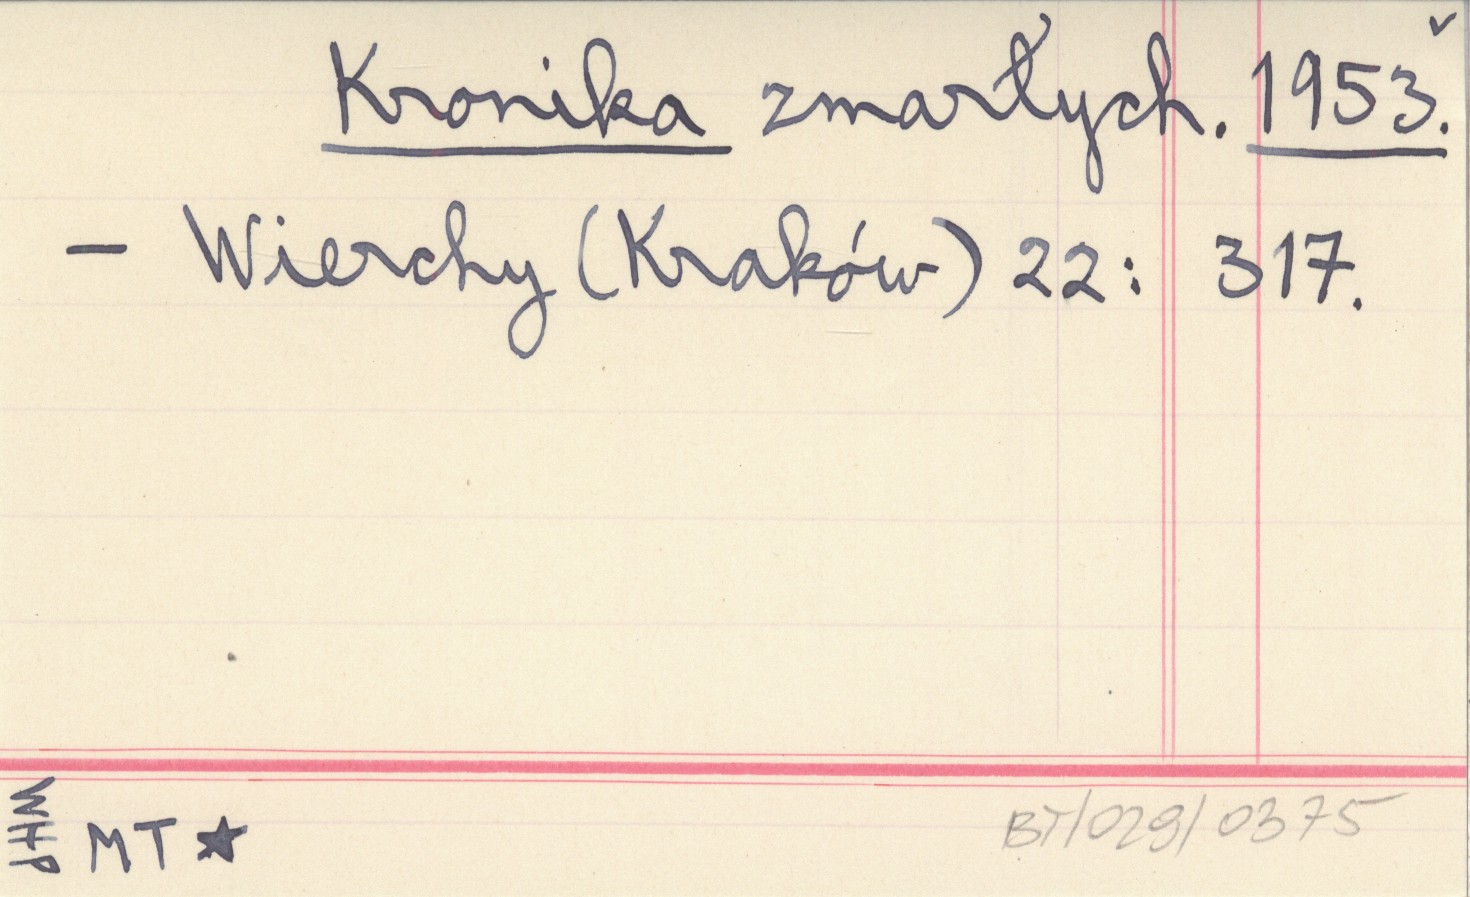 Kronika zmarłych. 1953.
— Wierchy (Kraków) 22: 317.
WHP
MT ★
BT/029/0375